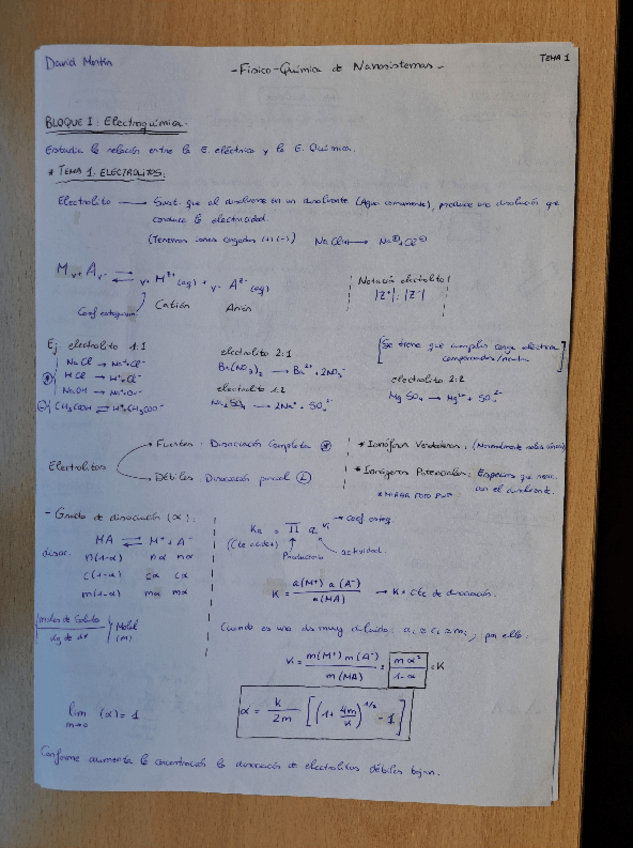 David Martín
- Físico-Química de Nanosistemas -
TEMA 1
BLOQUE I: Electroquímica.
Estudia la relación entre la E. eléctrica y la E. Química.
* TEMA 1. ELECTROLITOS.
Electrolito → Sust. que al disolverse en un disolvente (Agua comunmente), produce una disolución que
conduce la electricidad.
(Tenemos iones cargados (+) (-)) NaCl → Na⊕ + Cl⊖
Mν+ Aν- ⇌ ν+ M^Z+ (aq) + ν- A^Z- (aq)
Coef esteq Catión Anión
Notación electrolito
|Z+| : |Z-|
Ej electrolito 1:1
NaCl → Na+ + Cl-
HCl → H+ + Cl-
NaOH → Na+ + OH-
CH3COOH ⇌ H+ + CH3COO-
electrolito 2:1
Ba(NO3)2 → Ba2+ + 2NO3-
electrolito 1:2
Na2SO4 → 2Na+ + SO4 2-
[Se tiene que cumplir carga eléctrica
compensada/neutra]
electrolito 2:2
MgSO4 → Mg2+ + SO4 2-
Electrolitos
Fuertes: Disociación Completa
Débiles: Disociación parcial
* Ionóforos Verdaderos: (Normalmente sales iónicas)
* Ionógenos Potenciales: Especies que
con el disolvente.
* MIRAR FOTO PWP
- Grado de disociación (α):
MA ⇌ M+ + A-
disoc. n(1-α) nα nα
c(1-α) cα cα
m(1-α) mα mα
moles de soluto / kg de dv } Molal (m)
Ka = Π a^νi → coef esteq.
Productorio actividad
K = a(M+) a(A-) / a(MA) → K = Cte de disociación.
Cuando es una dis muy diluida: ai ≅ ci ≅ mi, por ello:
K = m(M+) m(A-) / m(MA) = mα² / 1-α = K
lim m→0 (α) = 1
α = k/2m [(1 + 4m/K)^1/2 - 1]
Conforme aumenta la concentración la disociación de electrolitos débiles bajan.